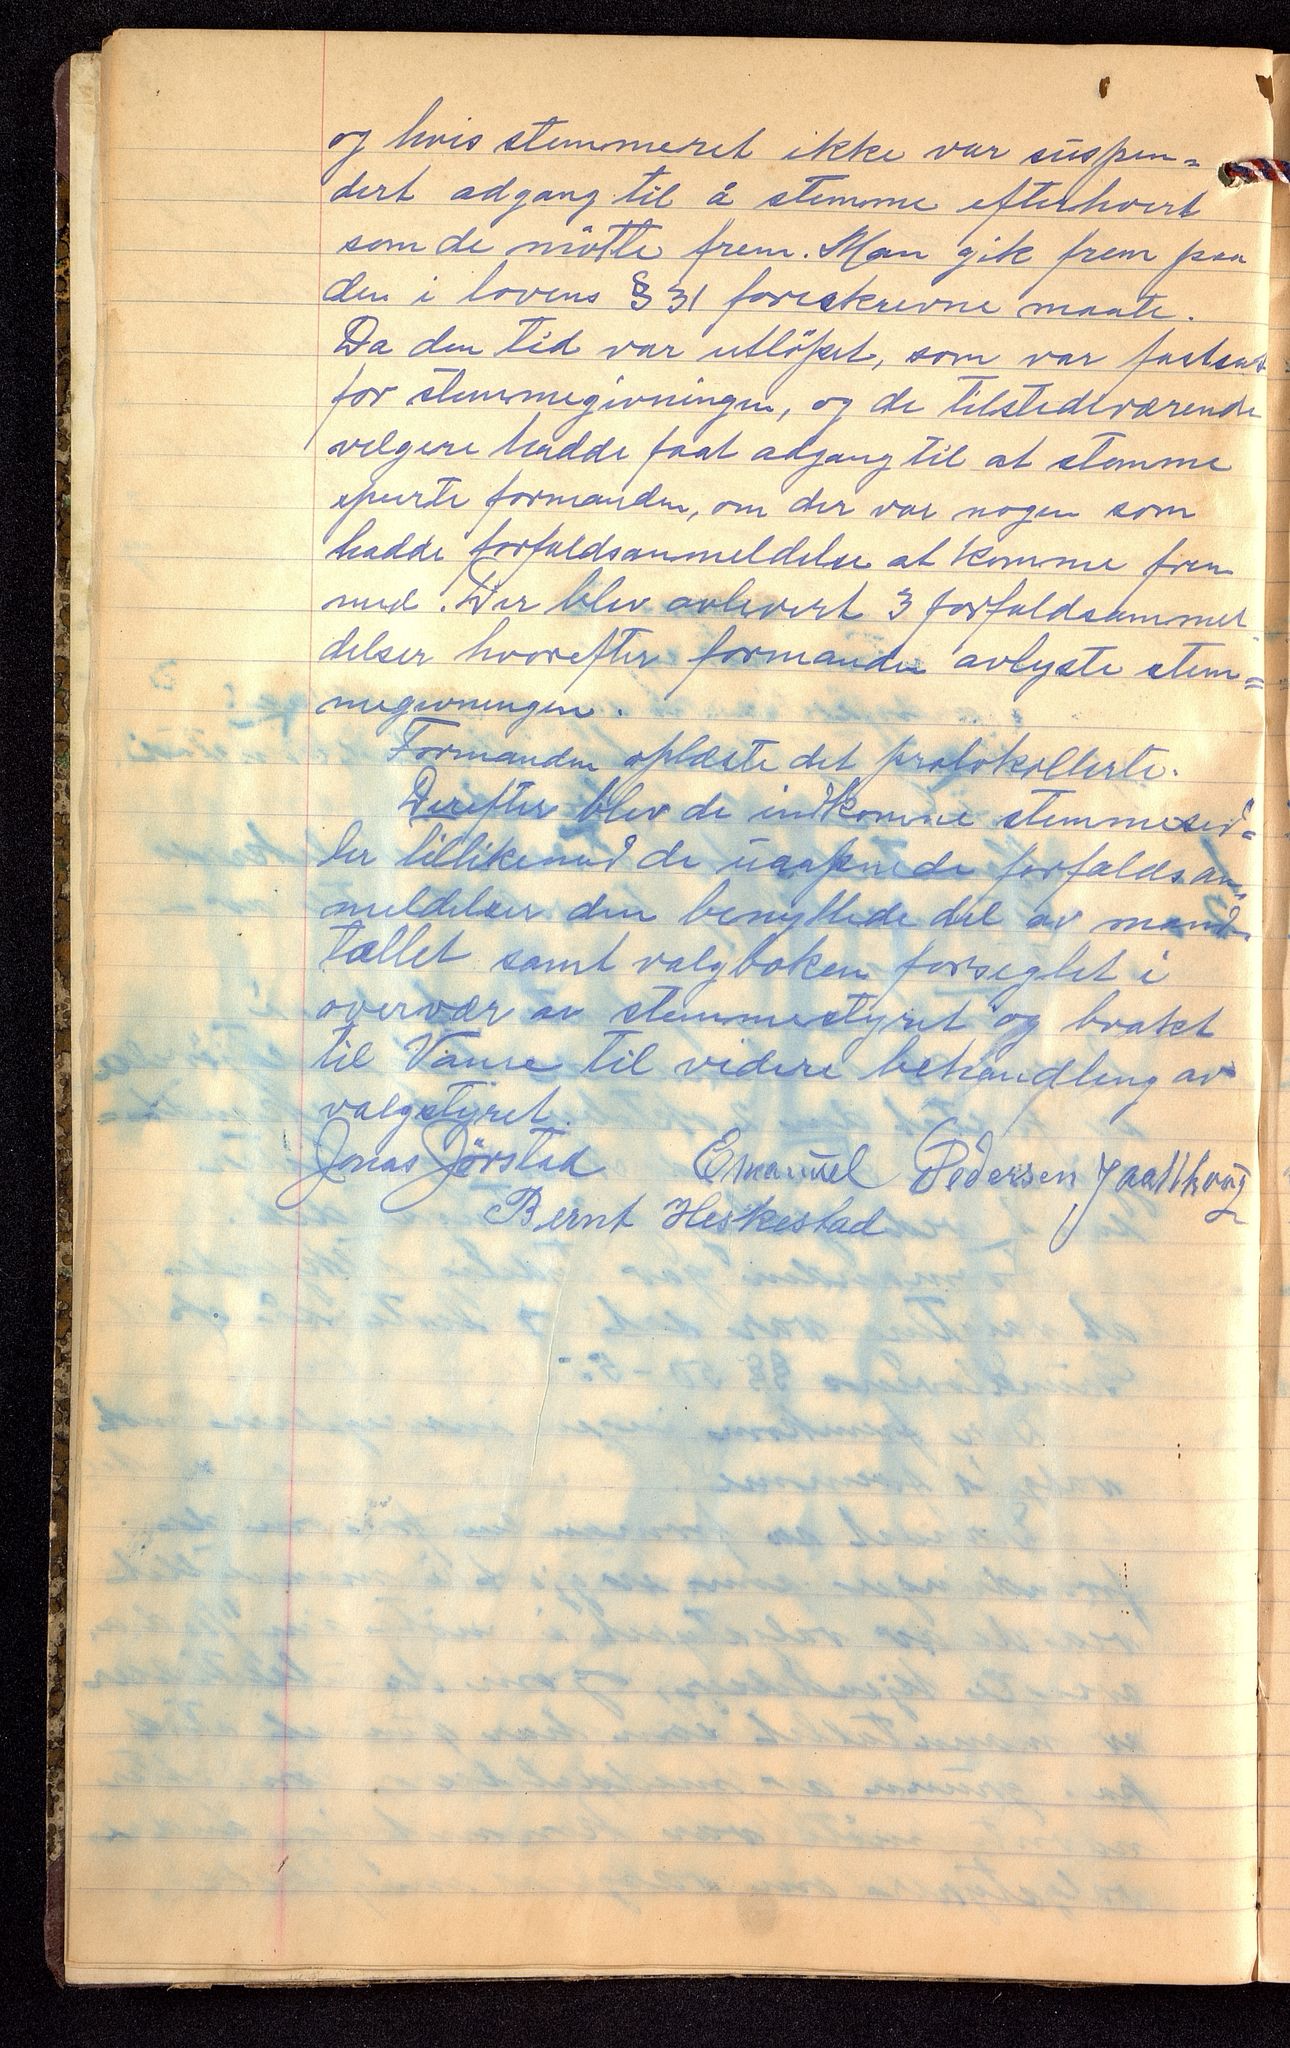 og hvis stemmeret ikke var suspen=
dert adgang til å stemme efterhvert
som de mötte frem. Man gik frem paa
den i lovens § 31 foreskrevne maate.
Da den tid var utlöpet, som var fastsat
for stemmegivningen, og de tilstedeværende
velgere hadde faat adgang til at stemme
spurte formanden, om der var nogen som
hadde forfaldsanmeldelse at komme frem
med. Der blev avlevert 3 forfaldsanmel
delser hvorefter formanden avlyste stem=
megivningen.
Formanden oplæste det protokollerte.
Derefter blev de indkomne stemmesed=
ler tillikemed de uaapnede forfaldsan=
meldelser den benyttede del av mand=
tallet samt valgboken forseglet i
overvær av stemmestyret og bragt
til Vanse til videre behandling av
valgstyret.
Jonas Jørstad Emanuel Pedersen
Bernt Heskestad